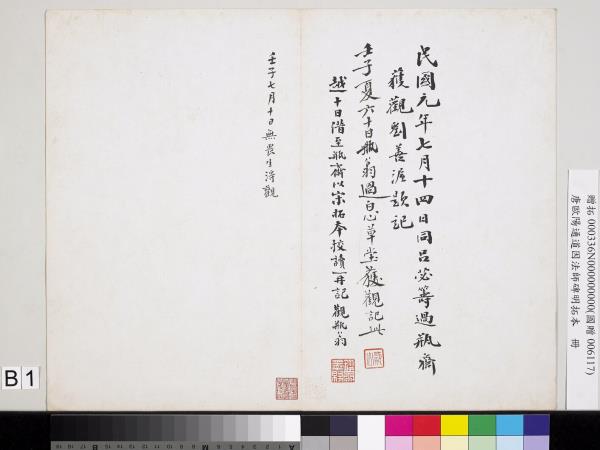 民國元年七月十四日同呂苾籌過瓶齋
獲觀劉善渥題記
壬子夏六十日瓶翁過白心草堂獲觀記此
越十日偕至瓶齋以宋拓本挍讀一再記觀瓶翁
壬子七月十日無畏生淂觀
贈拓 000336N000000000(國贈 006117)
唐歐陽通道因法師碑明拓本 冊
B 1